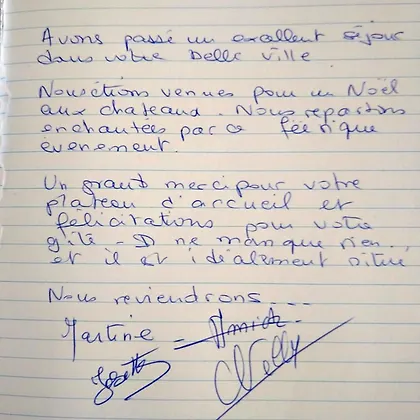 Avons passé un excellent séjour
dans votre belle ville
Nous étions venues pour un Noël
aux chateaux. Nous repartons
enchantées par ce féerique
évenement.
Un grand merci pour votre
plateau d'accueil et
félicitations pour votre
gîte - Il ne manque rien..
et il et idéalement situé
Nous reviendrons....
Martine =
Josette
Nelly